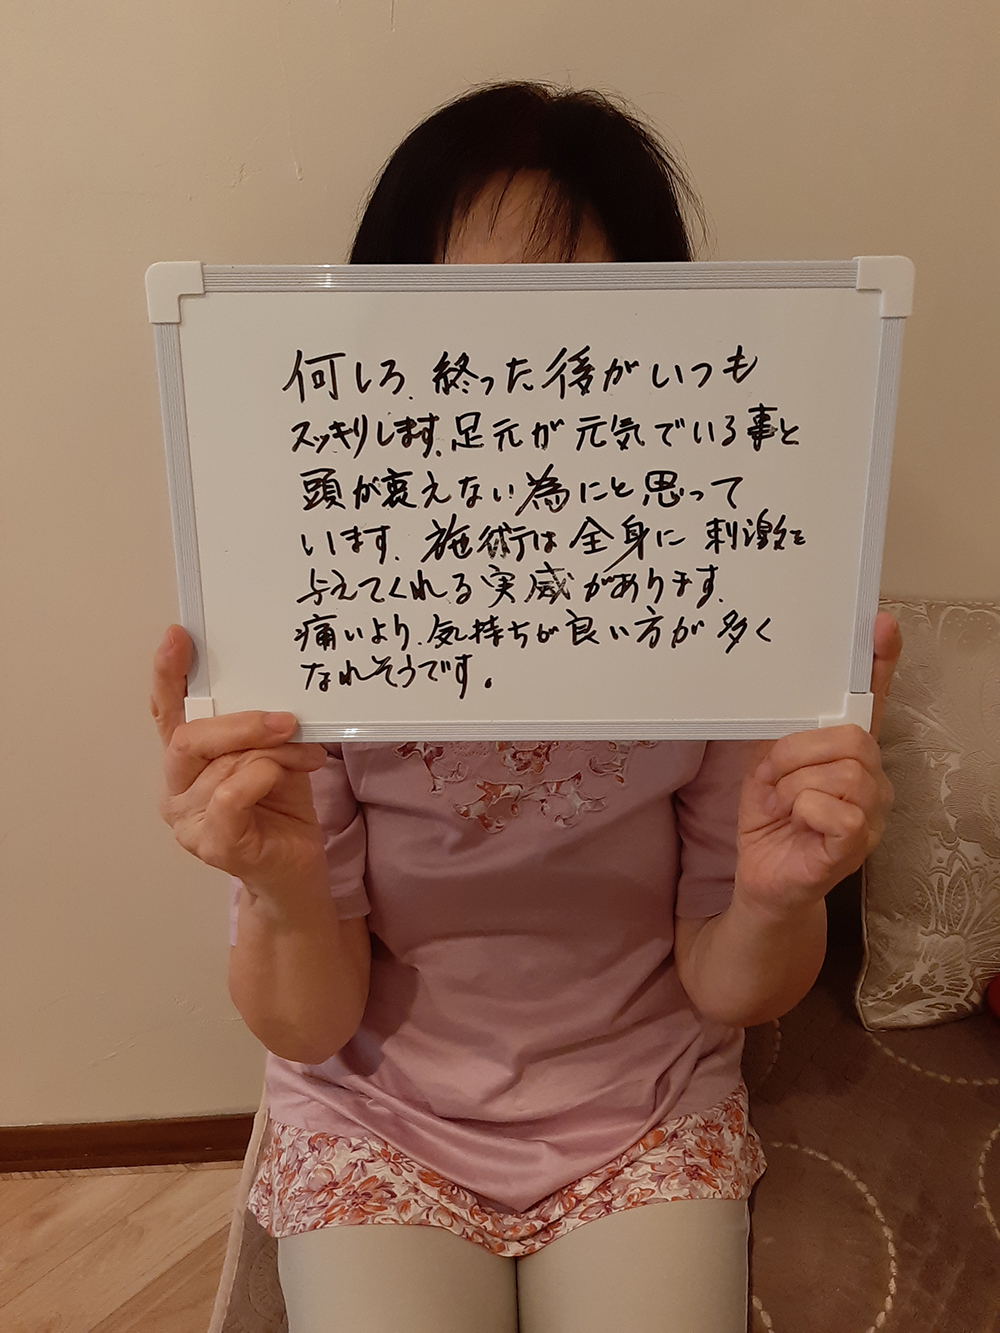 何しろ、終った後がいつも
スッキリします。足元が元気でいる事と
頭が衰えない為にと思って
います。施術は全身に刺激を
与えてくれる実感があります。
痛いより、気持ちが良い方が多く
なれそうです。